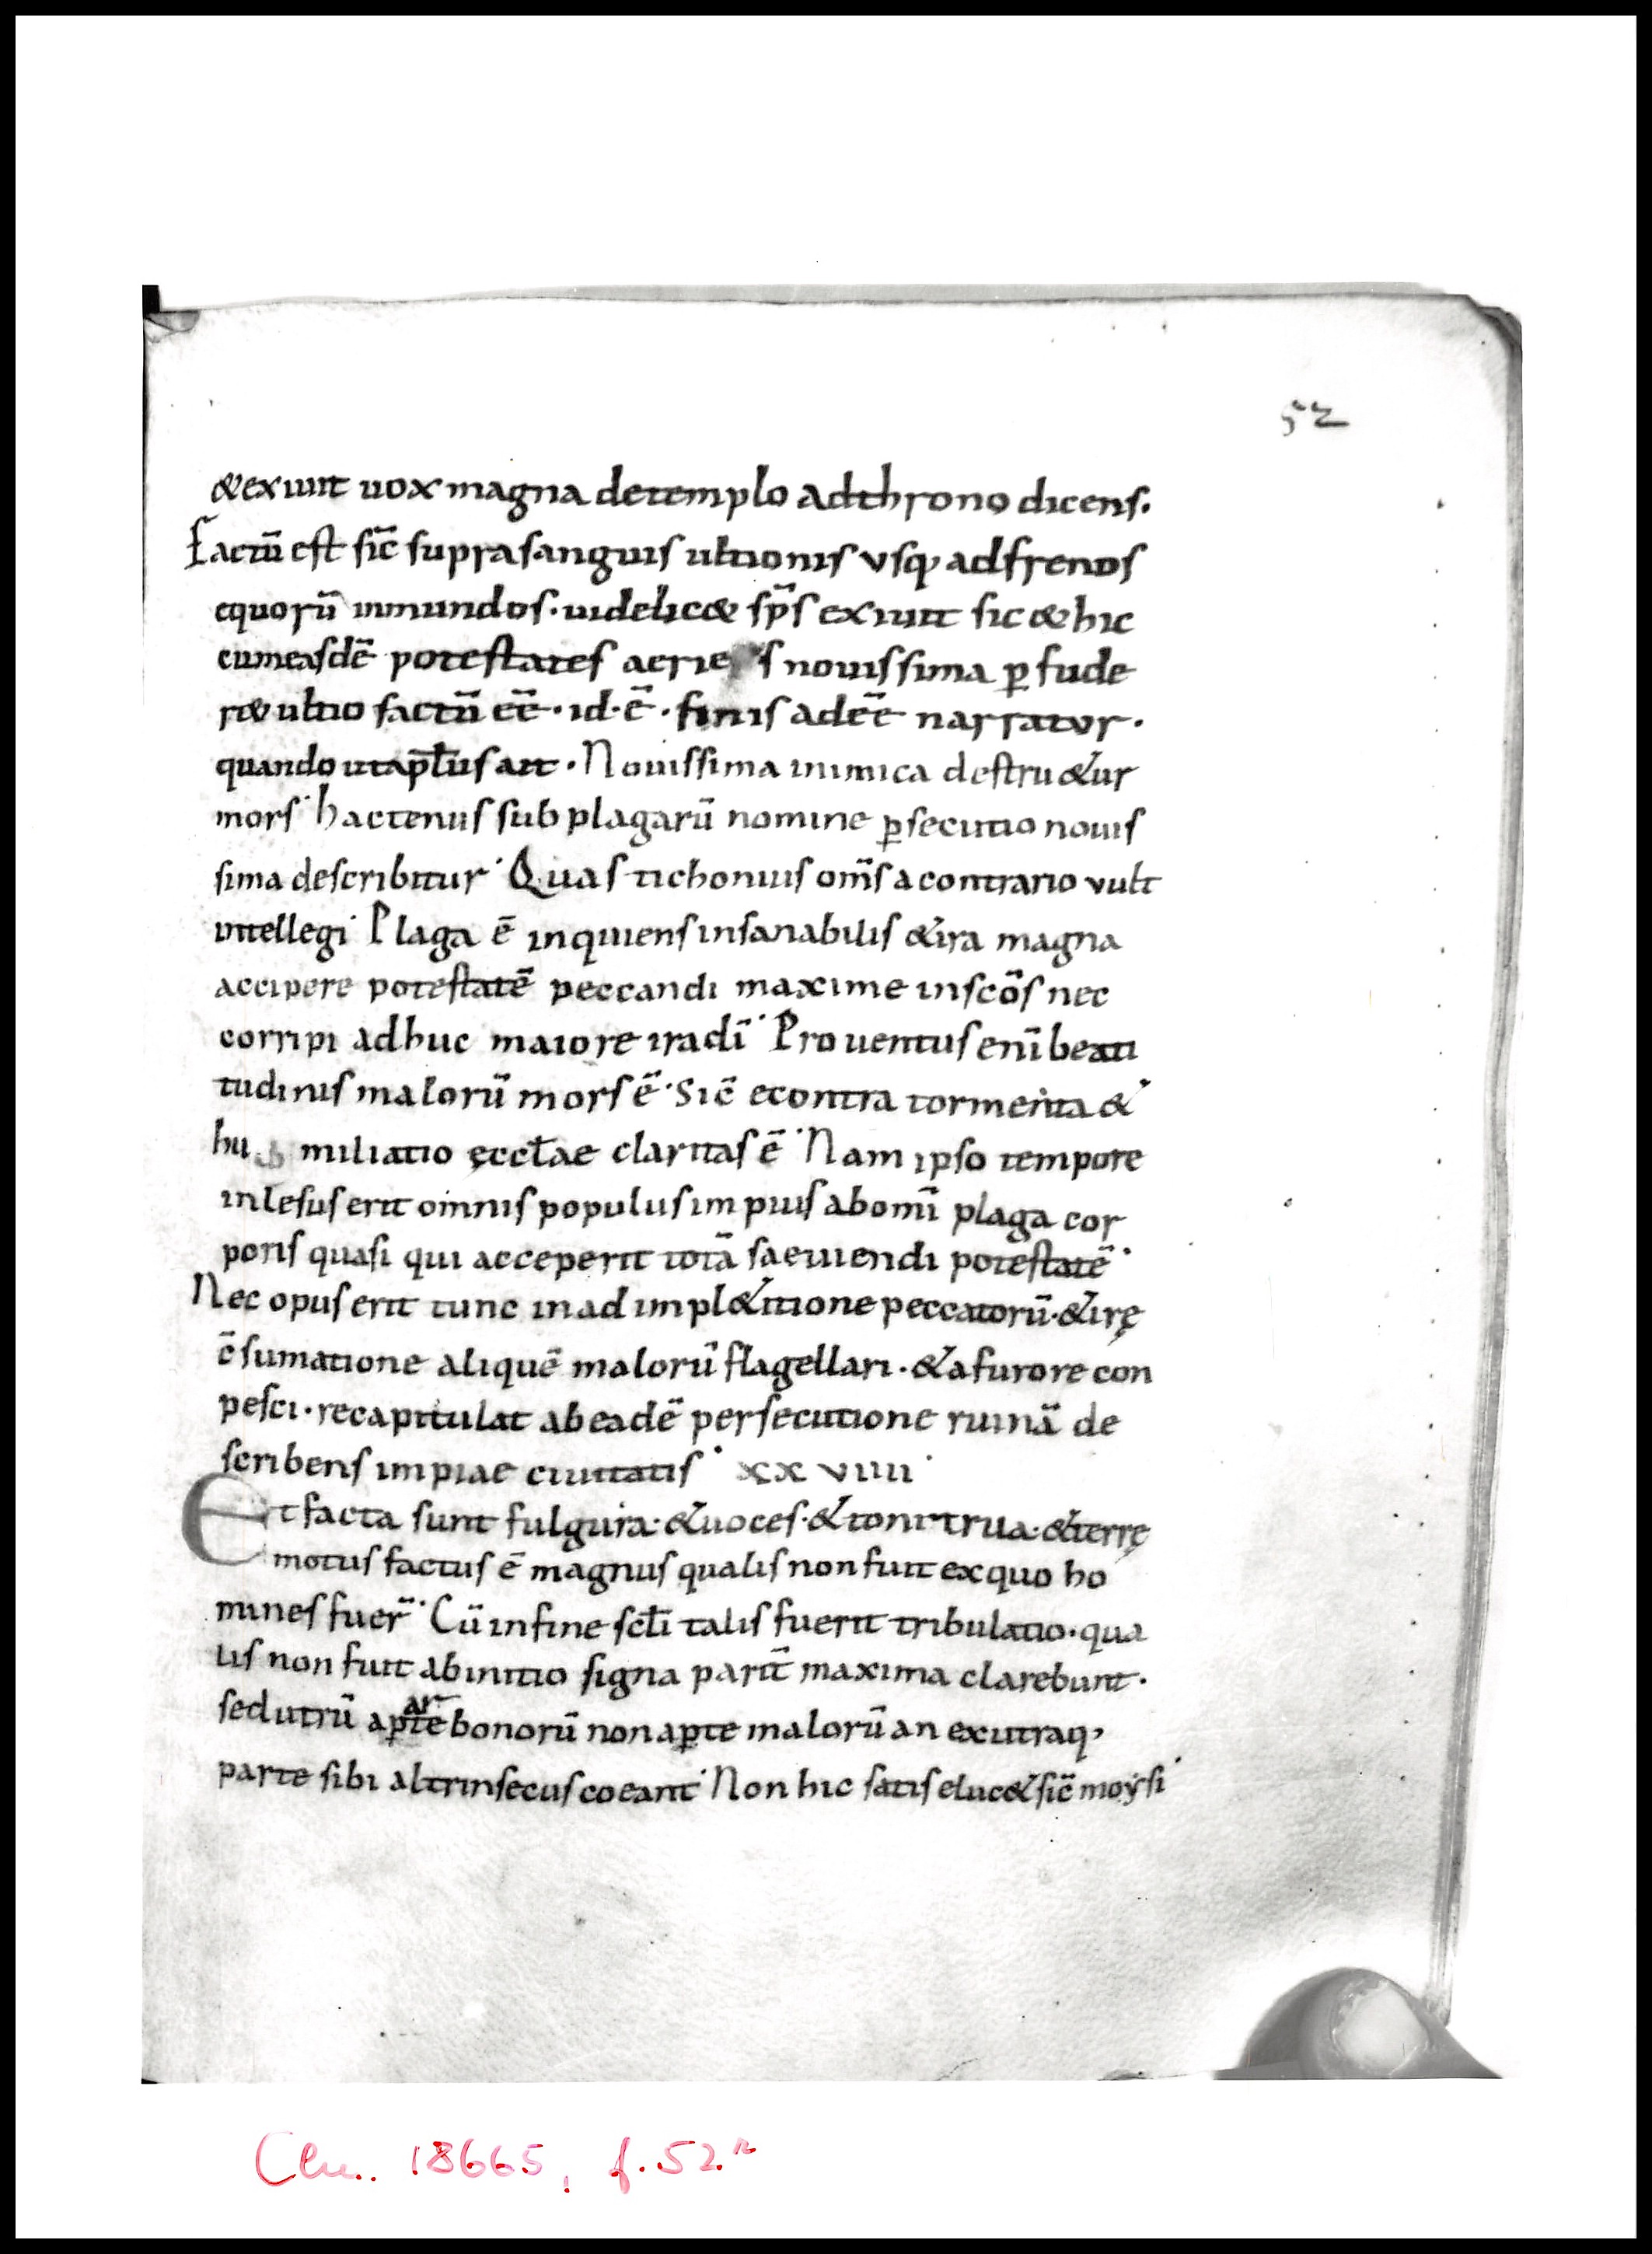 52
&exiuit uox magna detemplo adthrono dicens.
Factū est sic̄ suprasanguis ultionis vsq, adfrenos
equorū inmundos. uidelic& sp̄s exiuit sic & hic
cumeasdē potestates aerie s nouissima p̱ fude
r& ultio factū eē. id. ē. finis adeē narratvr.
quando utapl̄us ait. Nouissima inimica destru&ur
mors hactenus sub plagarū nomine p̱secutio nouis
sima describitur Quas tichonius om̄s acontrario vult
intellegi Plaga ē inquiens insanabilis &ira magna
accipere potestatē peccandi maxime inscōs nec
corripi adhuc maiore iradī Prouentus enī beati
tudinis malorū mors ē. Sic̄ econtra tormenta &
hu miliatio ęccl̄ae claritas ē Nam ipso tempore
inlesus erit omnis populus impius abomī plaga cor
poris quasi qui acceperit totā saeuiendi potestatē
Nec opus erit tunc inadimpl&itione peccatorū. &irę
c̄sumatione aliquē malorū flagellari. &afurore con
pesci. recapitulat abeadē persecutione ruinā de
scribens impiae ciuitatis xx viiii
Et facta sunt fulgura. &uoces. &tonitrua. &terrę
motus factus ē magnus qualis non fuit exquo ho
mines fuer̄ Cū infine scl̄i talis fuerit tribulatio. qua
lis non fuit abinitio signa parit̄ maxima clarebunt.
sed utrū ap̱te bonorū non ap̱te malorū an exutraq,
ar
parte sibi altrinsecus coeant Non hic satis eluc& sic̄ moysi
Clm. 18665, f. 52r